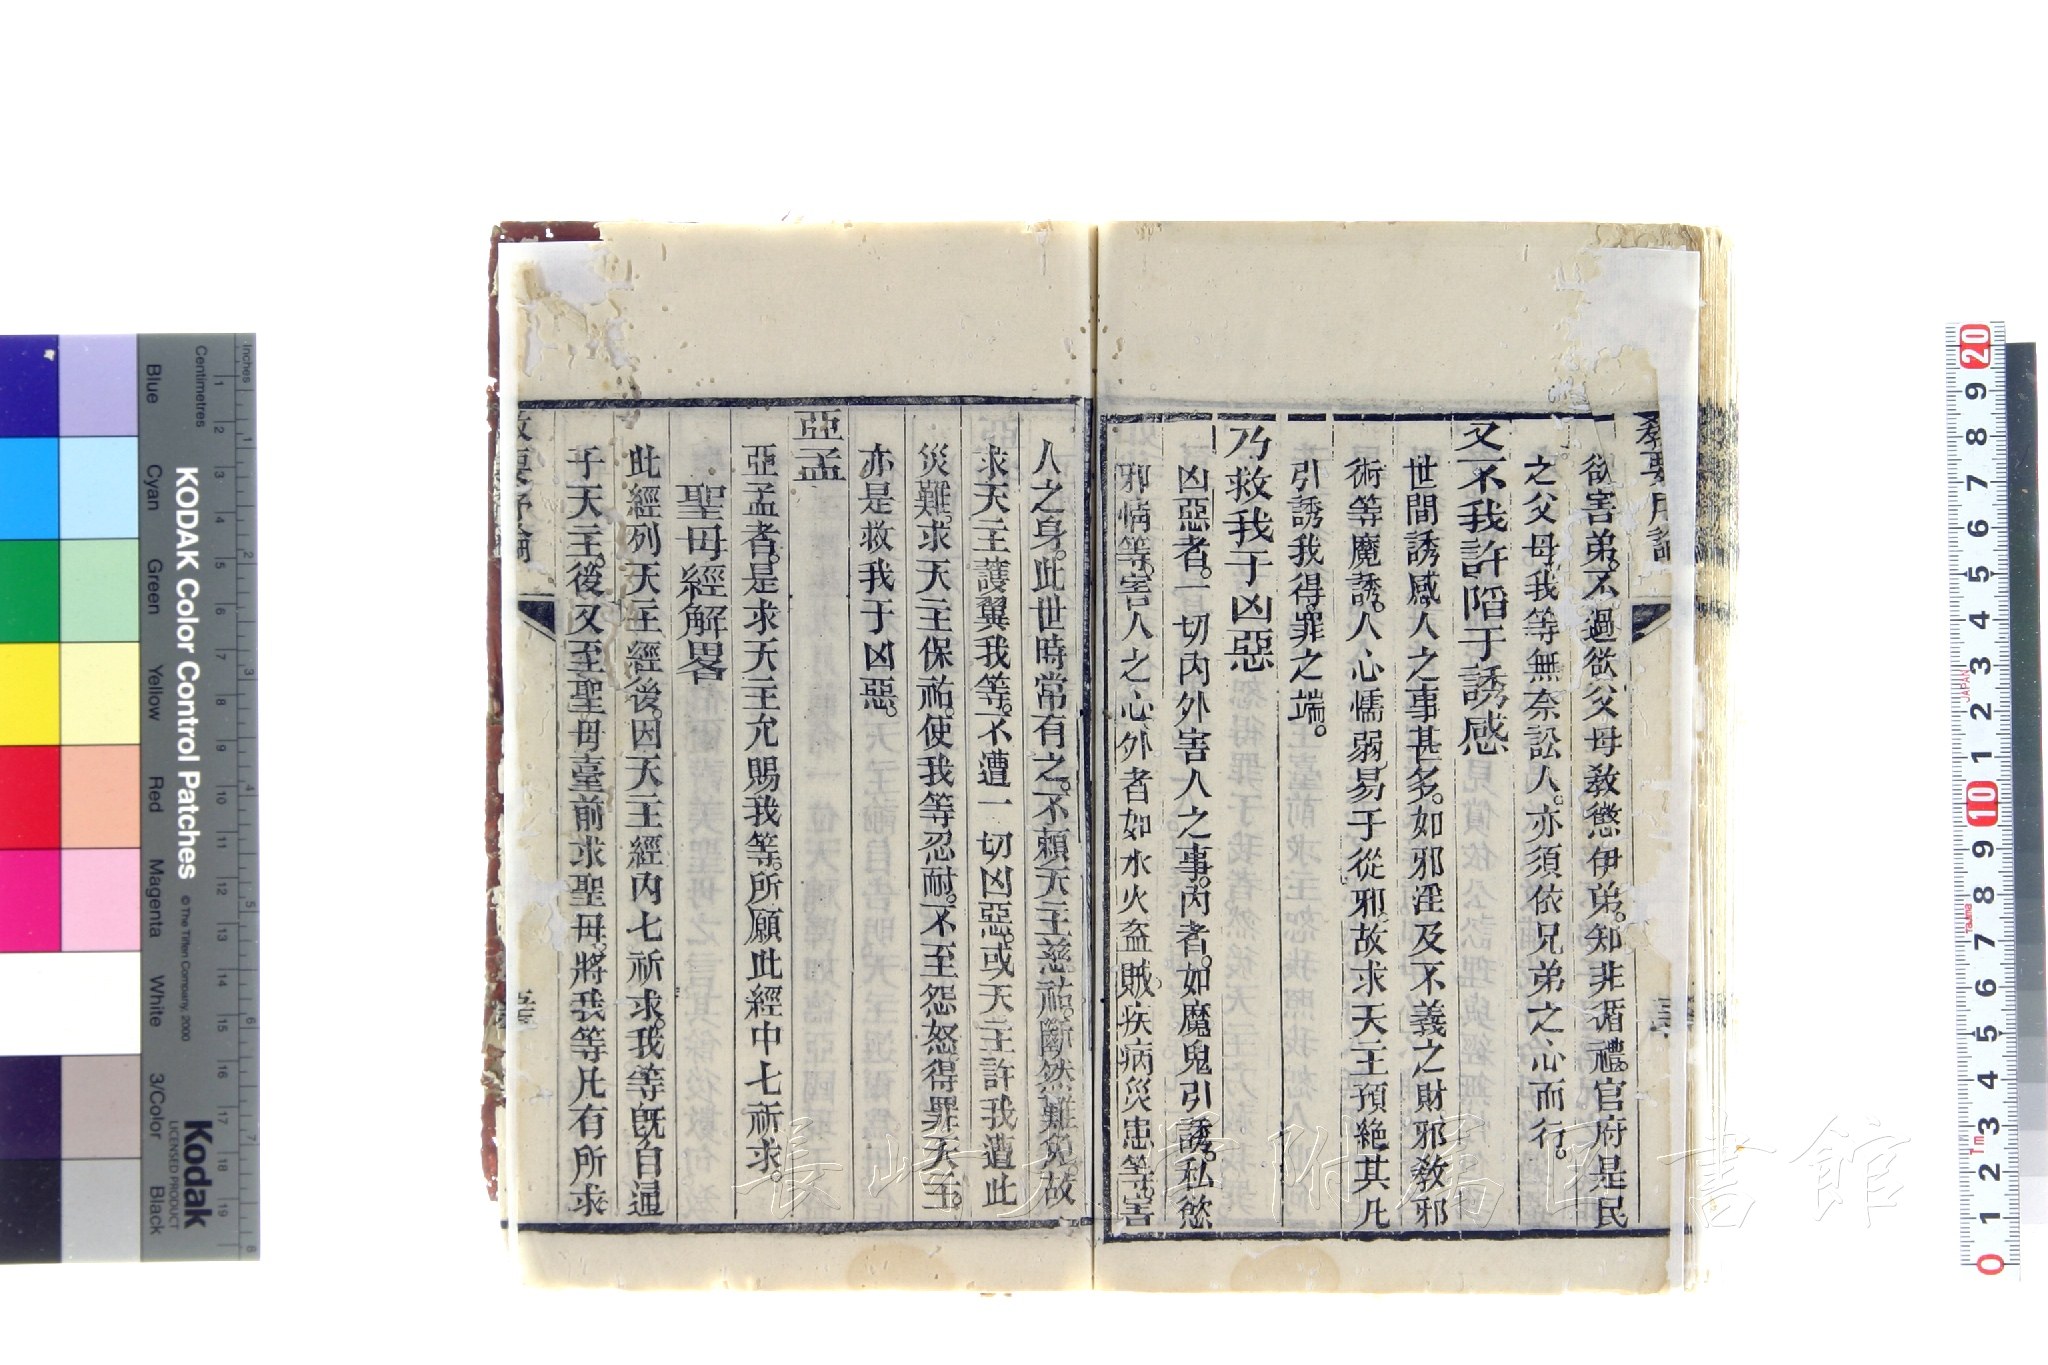 欲害弟。不過欲父母敎懲伊弟。知非循禮。官府是民
之父母。我等無奈訟人。亦須依兄弟之心而行。
又不我許陷于誘感
世間誘感人之事甚多。如邪淫及不義之財邪敎邪
術等魔誘。人心懦弱易于從邪。故求天主預絶其凡
引誘我得罪之端。
乃救我于凶惡
凶惡者。一切內外害人之事。內者。如魔鬼引誘。私慾
邪情等。害人之心。外者如水火盜賊。疾病災患等。害
人之身。此世時常有之。不賴天主慈祐。斷然難免。故
求天主護翼我等。不遭一切凶惡。或天主許我遭此
災難。求天主保祐。使我等忍耐。不至怨怒得罪天主。
亦是救我于凶惡。
亞孟
亞孟者。是求天主允賜我等。所願此經中七祈求。
聖母經解畧
此經列天主經後。因天主經內七祈求。我等旣自通
于天主。後又至聖母臺前求聖母。將我等凡有所求
長崎大学附属図書館
KODAK Color Control Patches
© The Tiffen Company, 2000
Kodak
LICENSED PRODUCT
Inches
Centimetres
Blue
Cyan
Green
Yellow
Red
Magenta
White
3/Color
Black